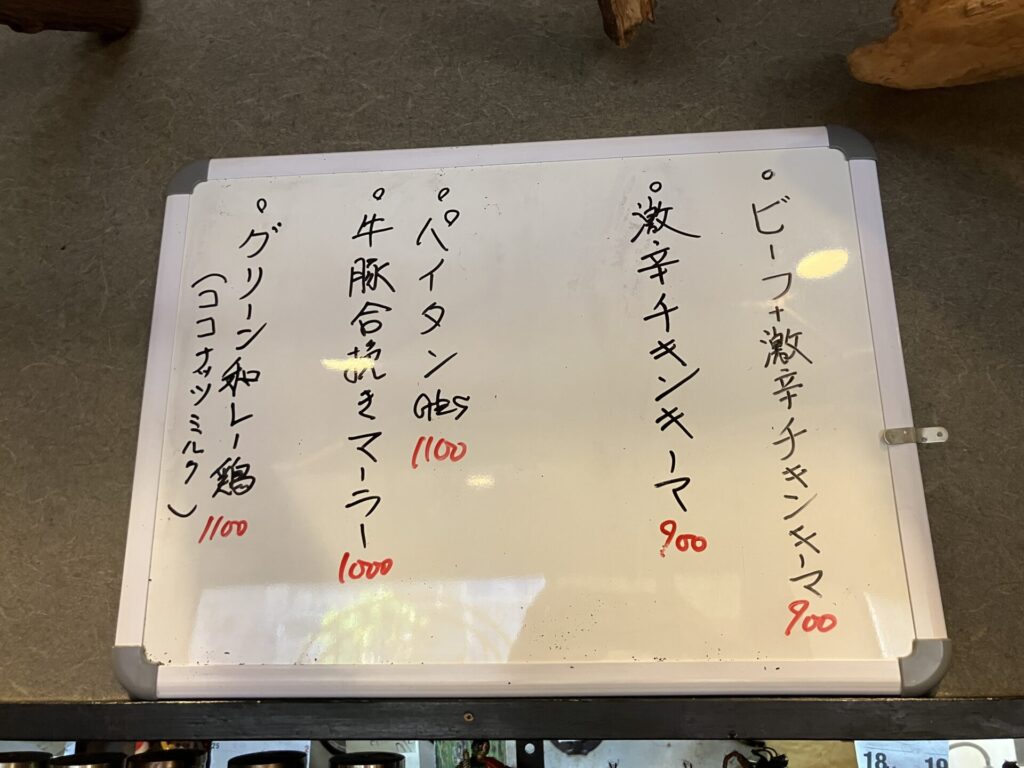 。ビーフ+激辛チキンキーマ
900
。激辛チキンキーマ
900
。パイタン
1100
。牛豚合挽きマーラー
1000
。グリーン和レー鶏
(ココナッツミルク)
1100
18
19